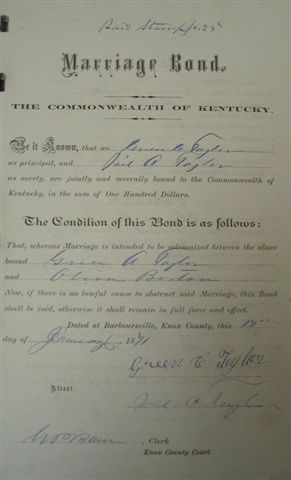 Paid Stamp
Marriage Bond.
THE COMMONWEALTH OF KENTUCKY.
Be it Known, that we Green C Taylor
as principal, and A Taylor
as surety, are jointly and severally bound to the Commonwealth of
Kentucky, in the sum of One Hundred Dollars.
The Condition of this Bond is as follows:
That, whereas Marriage is intended to be solemnized between the above
bound Green Taylor
and
Now, if there is no lawful cause to obstruct said Marriage, this Bond
shall be void, otherwise it shall remain in full force and effect.
Dated at Barboursville, Knox County, this
day of January 18
Green C Taylor
Attest:
Taylor
, Clerk
Knox County Court.